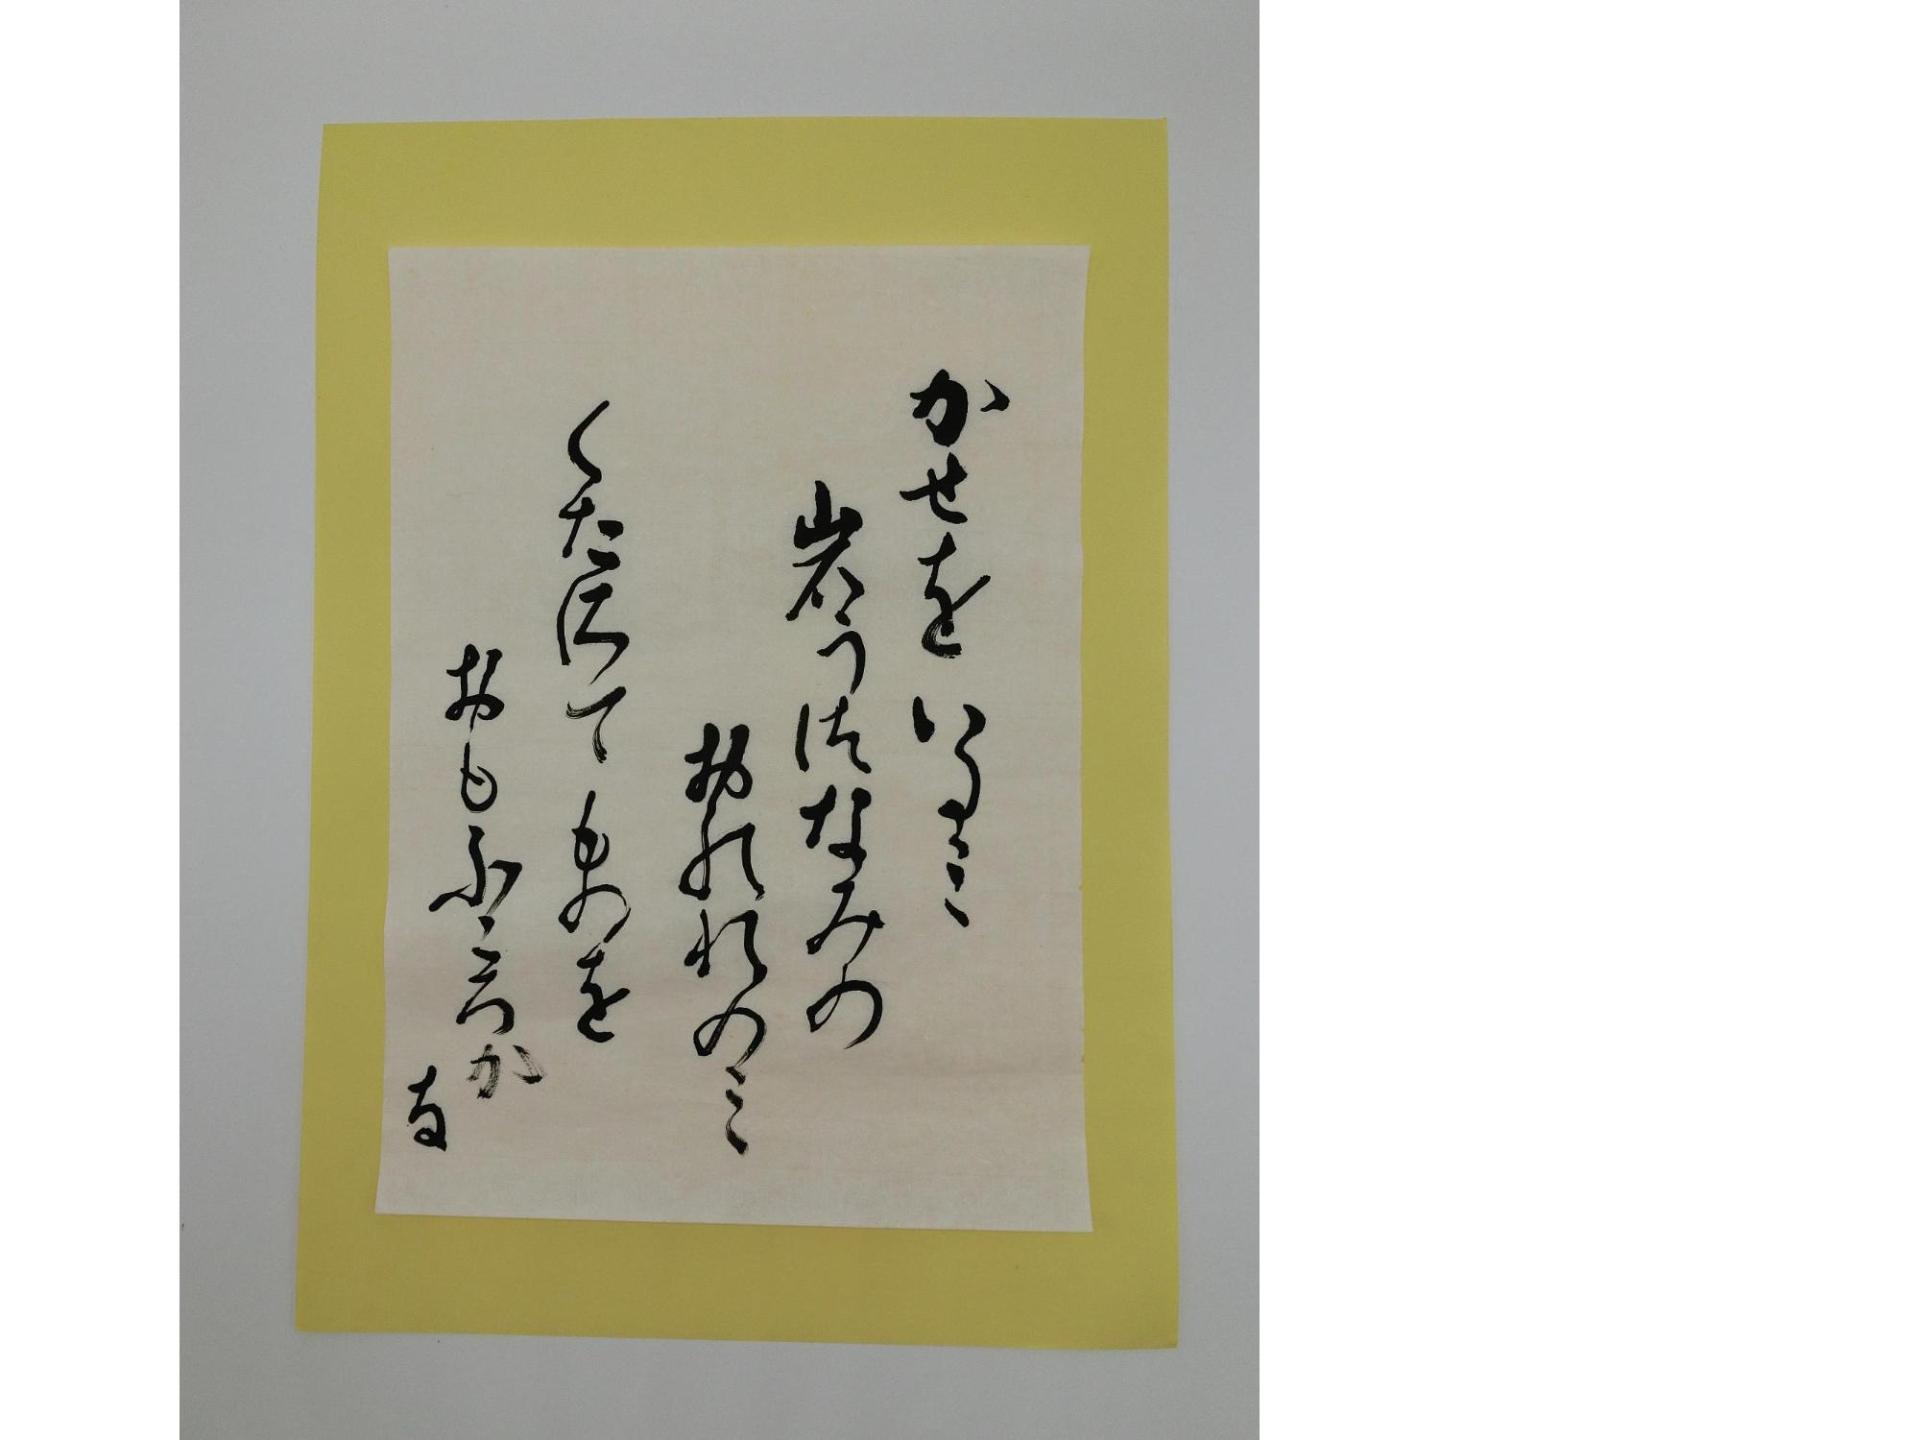 かせをいたミ
岩うつなみの
おのれのミ
くたけてものを
おもふころか
な